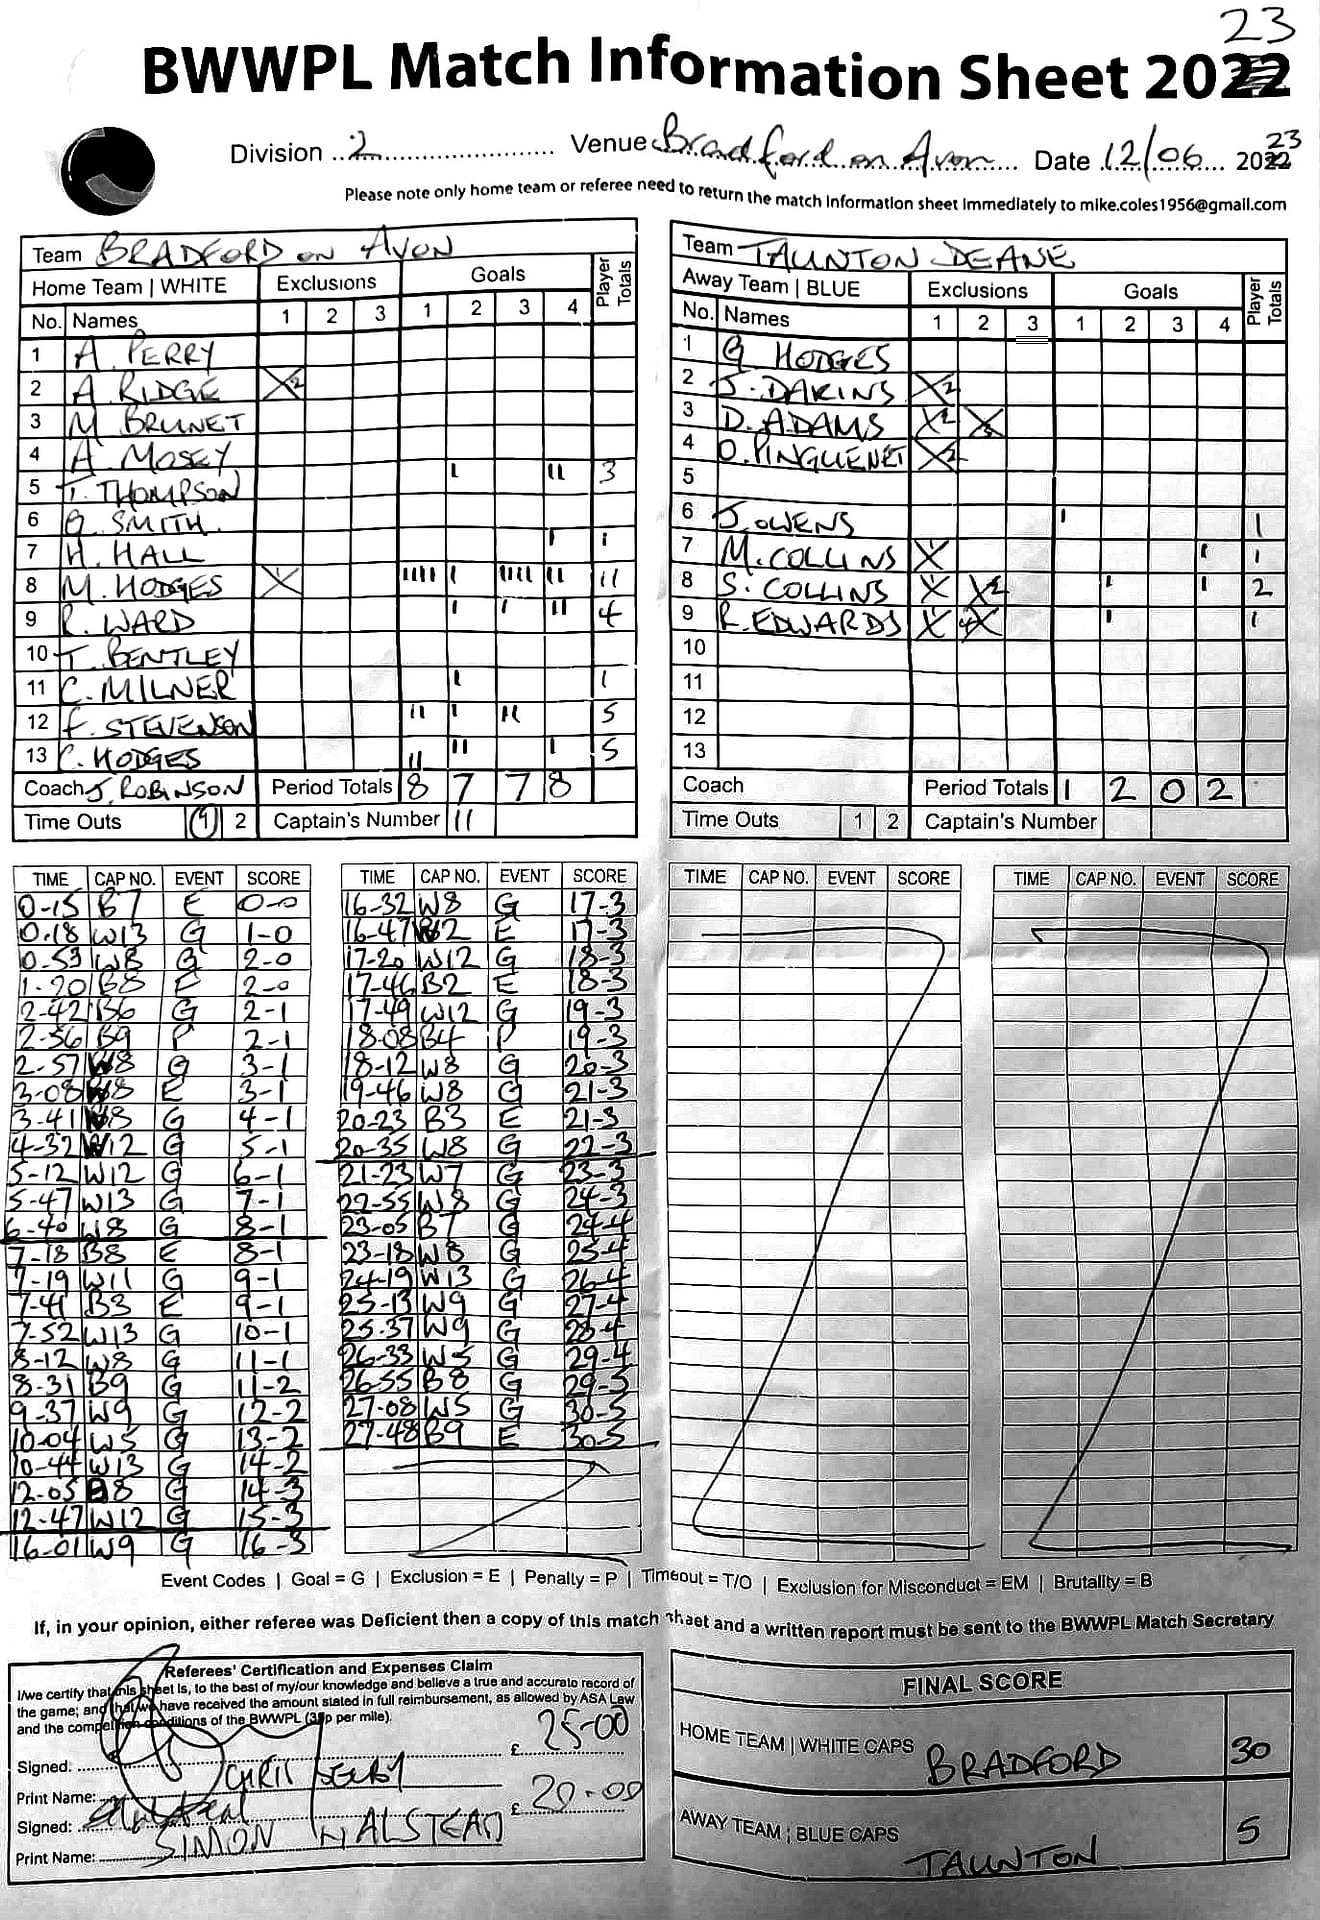 23
BWWPL Match Information Sheet 2022
Division 2 Venue Bradford on Avon Date 12/06 2022 23
Please note only home team or referee need to return the match information sheet immediately to mike.coles1956@gmail.com
Team BRADFORD on AVON
Home Team | WHITE Exclusions Goals Player Totals
No. Names 1 2 3 1 2 3 4
1 A. PERRY
2 A. RIDGE X2
3 M BRUNET
4 A. MOSEY
5 T. THOMPSON I II 3
6 G. SMITH
7 H. HALL I 1
8 M. HODGES X IIII I IIII II 11
9 R. WARD I I II 4
10 T. BENTLEY
11 C. MILNER I 1
12 F. STEVENSON II I II 5
13 C. HODGES II II I 5
Coach J. ROBINSON Period Totals 8 7 7 8
Time Outs 1 2 Captain's Number 11
Team TAUNTON DEANE
Away Team | BLUE Exclusions Goals Player Totals
No. Names 1 2 3 1 2 3 4
1 G HODGES
2 J. DAKINS X2
3 D. ADAMS X2 X3
4 O. PINGUENET X2
5
6 J. OWENS I 1
7 M. COLLINS X I 1
8 S. COLLINS X X2 I I 2
9 R. EDWARDS X X4 I 1
10
11
12
13
Coach Period Totals 1 2 0 2
Time Outs 1 2 Captain's Number
TIME CAP NO. EVENT SCORE
0-15 B7 E 0-0
0.18 W13 G 1-0
0-53 W8 G 2-0
1-20 B8 E 2-0
2-42 B6 G 2-1
2-56 B9 P 2-1
2-57 W8 G 3-1
3-08 W8 E 3-1
3-41 W8 G 4-1
4-32 W12 G 5-1
5-12 W12 G 6-1
5-47 W13 G 7-1
6-40 W8 G 8-1
7-18 B8 E 8-1
7-19 W11 G 9-1
7-41 B3 E 9-1
7-52 W13 G 10-1
8-12 W8 G 11-1
8-31 B9 G 11-2
9-37 W9 G 12-2
10-04 W5 G 13-2
10-44 W13 G 14-2
12-05 B8 G 14-3
12-47 W12 G 15-3
16-01 W9 G 16-3
TIME CAP NO. EVENT SCORE
16-32 W8 G 17-3
16-47 W2 E 17-3
17-20 W12 G 18-3
17-46 B2 E 18-3
17-49 W12 G 19-3
18-08 B4 P 19-3
18-12 W8 G 20-3
19-46 W8 G 21-3
20-23 B3 E 21-3
20-35 W8 G 22-3
21-23 W7 G 23-3
22-55 W8 G 24-3
23-05 B7 G 24-4
23-18 W8 G 25-4
24-19 W13 G 26-4
25-13 W9 G 27-4
25.37 W9 G 28-4
26-33 W5 G 29-4
26-55 B8 G 29-5
27-08 W5 G 30-5
27-48 B9 E 30-5
TIME CAP NO. EVENT SCORE
TIME CAP NO. EVENT SCORE
Event Codes | Goal = G | Exclusion = E | Penalty = P | Timeout = T/O | Exclusion for Misconduct = EM | Brutality = B
If, in your opinion, either referee was Deficient then a copy of this match sheet and a written report must be sent to the BWWPL Match Secretary
Referees' Certification and Expenses Claim
I/we certify that this sheet is, to the best of my/our knowledge and believe a true and accurate record of
the game; and that we have received the amount stated in full reimbursement, as allowed by ASA Law
and the competition conditions of the BWWPL (35p per mile).
Signed: £ 25-00
Print Name: CHRIS
Signed: £ 20-00
Print Name: SIMON HALSTEAD
FINAL SCORE
HOME TEAM | WHITE CAPS BRADFORD 30
AWAY TEAM | BLUE CAPS TAUNTON 5